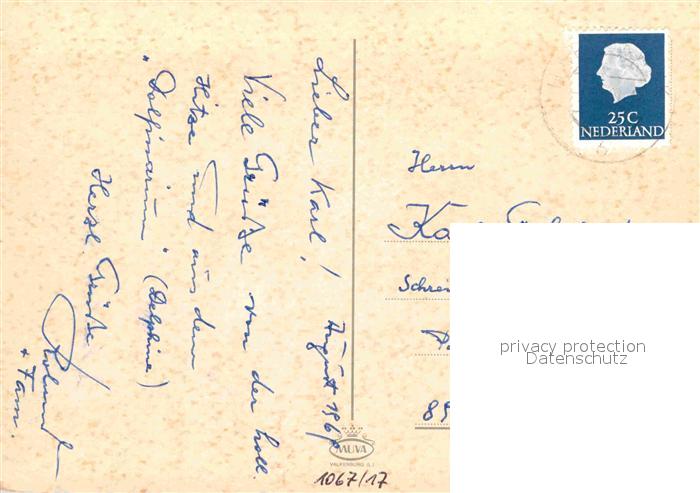 Lieber Karl!
August 196
Viele Grüße von der holl.
Hitze und aus dem
"Dolfinarium" (Delphine)
Herzl. Grüße
Roland
+ Fam.
25 C
NEDERLAND
Herrn
Schrei
89
privacy protection
Datenschutz
MUVA
VALKENBURG (L.)
1067/17